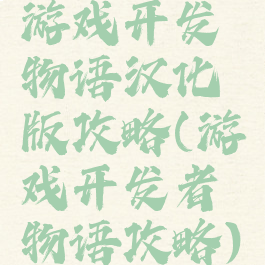 游戏开发
物语汉化
版攻略(游
戏开发者
物语攻略)